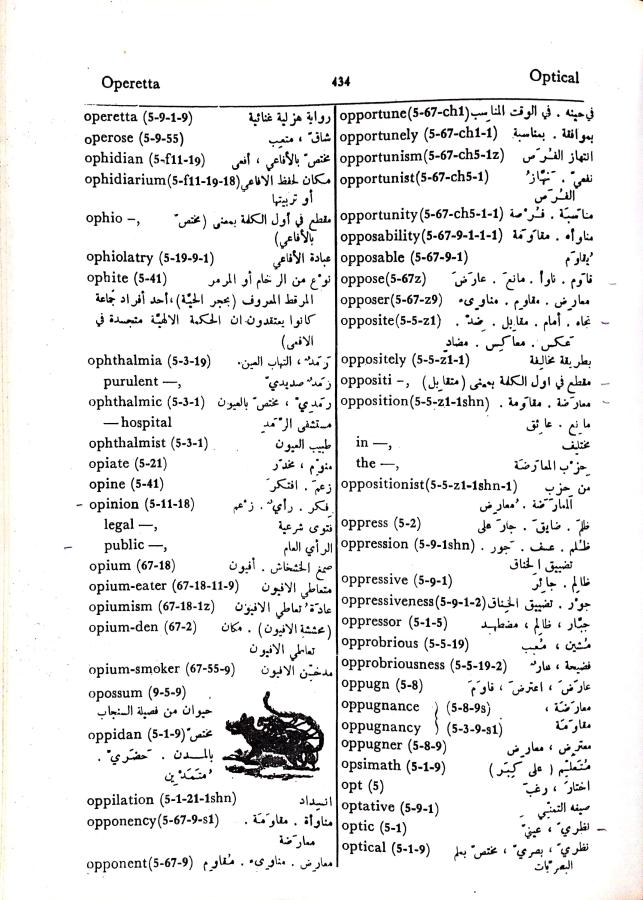 Operetta 434 Optical
operetta (5-9-1-9) رواية هزلية غنائية
operose (5-9-55) شاق ، متعِب
ophidian (5-f11-19) مختصّ بالأفاعي ، أفعى
ophidiarium(5-f11-19-18) مكان لحفظ الافاعي
أو تربيتها
ophio –, مقطع في أول الكلمة بمعنى (مختصّ
بالأفاعي)
ophiolatry (5-19-9-1) عبادة الأفاعي
ophite (5-41) نوع من الرخام أو المرمر
المرقط المعروف (بحجر الحيّة)، أحد أفراد جماعة
كانوا يعتقدون ان الحكمة الالهية متجسدة في
الافعى)
ophthalmia (5-3-19) رَمَد ، التهاب العين.
purulent —, رَمَد صديديّ
ophthalmic (5-3-1) رمَديّ ، مختصّ بالعيون
— hospital مستشفى الرّمَد
ophthalmist (5-3-1) طبيب العيون
opiate (5-21) منوّم ، مخدّر
opine (5-41) زعَمَ . افتكرَ
- opinion (5-11-18) فِكر . رأي . زعم
legal —, فتوى شرعية
public —, الرأي العام
opium (67-18) صمغ الخشخاش . أفيون
opium-eater (67-18-11-9) متعاطي الافيون
opiumism (67-18-1z) عادة تعاطي الافيون
opium-den (67-2) (محششة الافيون) . مكان
تعاطي الافيون
opium-smoker (67-55-9) مدخّن الافيون
opossum (9-5-9)
حيوان من فصيلة السنجاب
oppidan (5-1-9) مختصّ
بالمدن . حَضَري .
مُتَمَدّين
oppilation (5-1-21-1shn) انسِداد
opponency(5-67-9-s1) مناوأة . مقاوَمة .
معارَضة
opponent(5-67-9) معارِض . مناوىء . مُقاوم
opportune(5-67-ch1) في حينه . في الوقت المناسب
opportunely (5-67-ch1-1) بموافقة . بمناسبة
opportunism(5-67-ch5-1z) انتهاز الفُرَص
opportunist(5-67-ch5-1) نفعيّ . نَهّازُ
الفُرَص
opportunity(5-67-ch5-1-1) مناسَبة . فُرصة
opposability(5-67-9-1-1-1) مناوأة . مقاوَمة
opposable (5-67-9-1) يُقاوَم
oppose(5-67z) قاوَمَ . ناوأَ . مانعَ . عارَضَ
opposer(5-67-z9) معارض . مقاوم . مناوىء
opposite(5-5-z1) تجاه . أمام . مقابل . ضدّ . –
عكس . معاكس . مضاد
oppositely (5-5-z1-1) بطريقة مخالِفة
oppositi –, مقطع في اول الكلمة بمعنى (متقابل) –
opposition(5-5-z1-1shn) معارَضة . مقاومة . –
مانع . عائق
in —, مختلِف
the —, حزب المعارَضة
oppositionist(5-5-z1-1shn-1) من حزب
المعارَضة . مُعارض
oppress (5-2) ظلمَ . ضايقَ . جارَ على
oppression (5-9-1shn) ظُلم . عسف . جَور .
تضييق الخناق
oppressive (5-9-1) ظالِم . جائر
oppressiveness(5-9-1-2) جوْر . تضييق الخِناق
oppressor (5-1-5) جبّار ، ظالِم ، مضطهِد
opprobrious (5-5-19) مُشين ،
opprobriousness (5-5-19-2) فضيحة ، عار
oppugn (5-8) عارَضَ ، اعترَضَ ، قاوَمَ
oppugnance } (5-8-9s) معارَضة ،
oppugnancy } (5-3-9-s1) مقاوَمة
oppugner (5-8-9) معترض ، معارض
opsimath (5-1-9) مُتَعلِّم (على كِبَر)
opt (5) اختارَ ، رغِبَ
optative (5-9-1) صيغه التمنّي
optic (5-1) نظريّ ، عينيّ –
optical (5-1-9) نظريّ ، بصريّ ، مختصّ بعلم
البصريّات